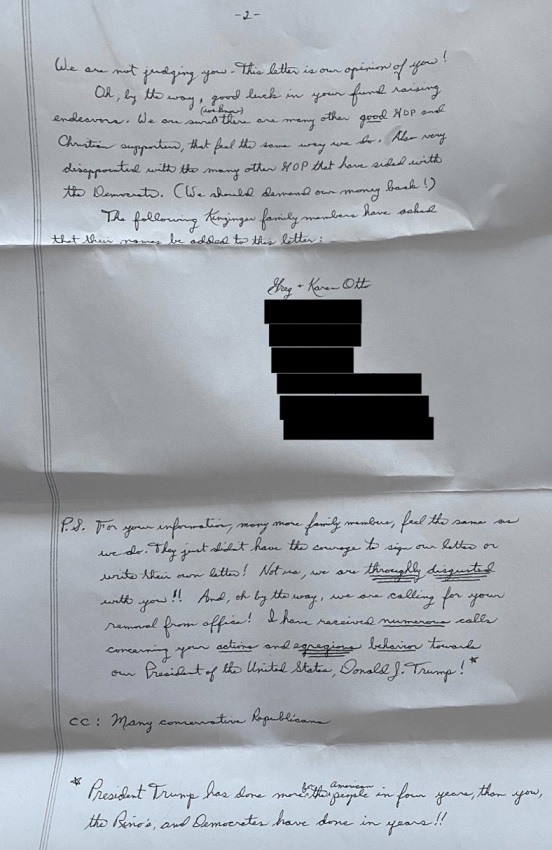 -2-
We are not judging you. This letter is our opinion of you!
Oh, by the way, good luck in your fund raising
endeavors. We are sure (we know) there are many other good GOP and
Christian supporters, that feel the same way we do. Also very
disappointed with the many other GOP that have sided with
the Democrats. (We should demand our money back!)
The following Kinzinger family members have asked
that their names be added to this letter:
Greg + Karen Otto
P.S. For your information, many more family members, feel the same as
we do. They just didn't have the courage to sign our letter or
write their own letter! Not us, we are throughly disgusted
with you!! And, oh by the way, we are calling for your
removal from office! I have received numerous calls
concerning your actions and egregious behavior towards
our President of the United States, Donald J. Trump!*
CC: Many conservative Republicans
* President Trump has done more for the American people in four years, than you,
the Rino's, and Democrates have done in years!!